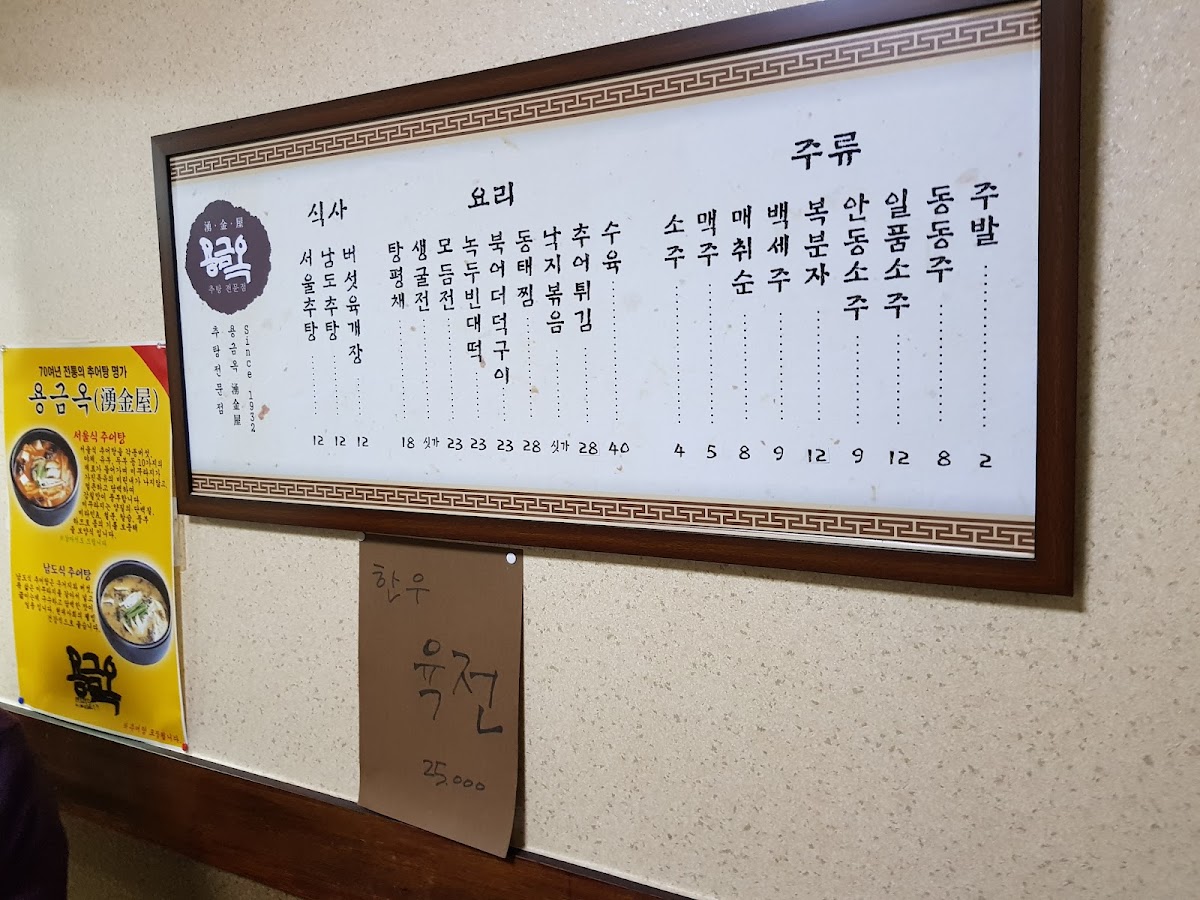 湧·金·屋
용금옥
추탕 전문점
Since 1932
용금옥 湧金屋
추탕전문점
식사
서울추탕 12
남도추탕 12
버섯육개장 12
요리
탕평채 18
생굴전 싯가
모듬전 23
녹두빈대떡 23
북어더덕구이 23
동태찜 28
낙지볶음 싯가
추어튀김 28
수육 40
주류
소주 4
맥주 5
매취순 8
백세주 9
복분자 12
안동소주 9
일품소주 12
동동주 8
주발 2
70여년 전통의 추어탕 명가
용금옥(湧金屋)
서울식 추어탕
남도식 추어탕
용금옥
한우
육전
25,000